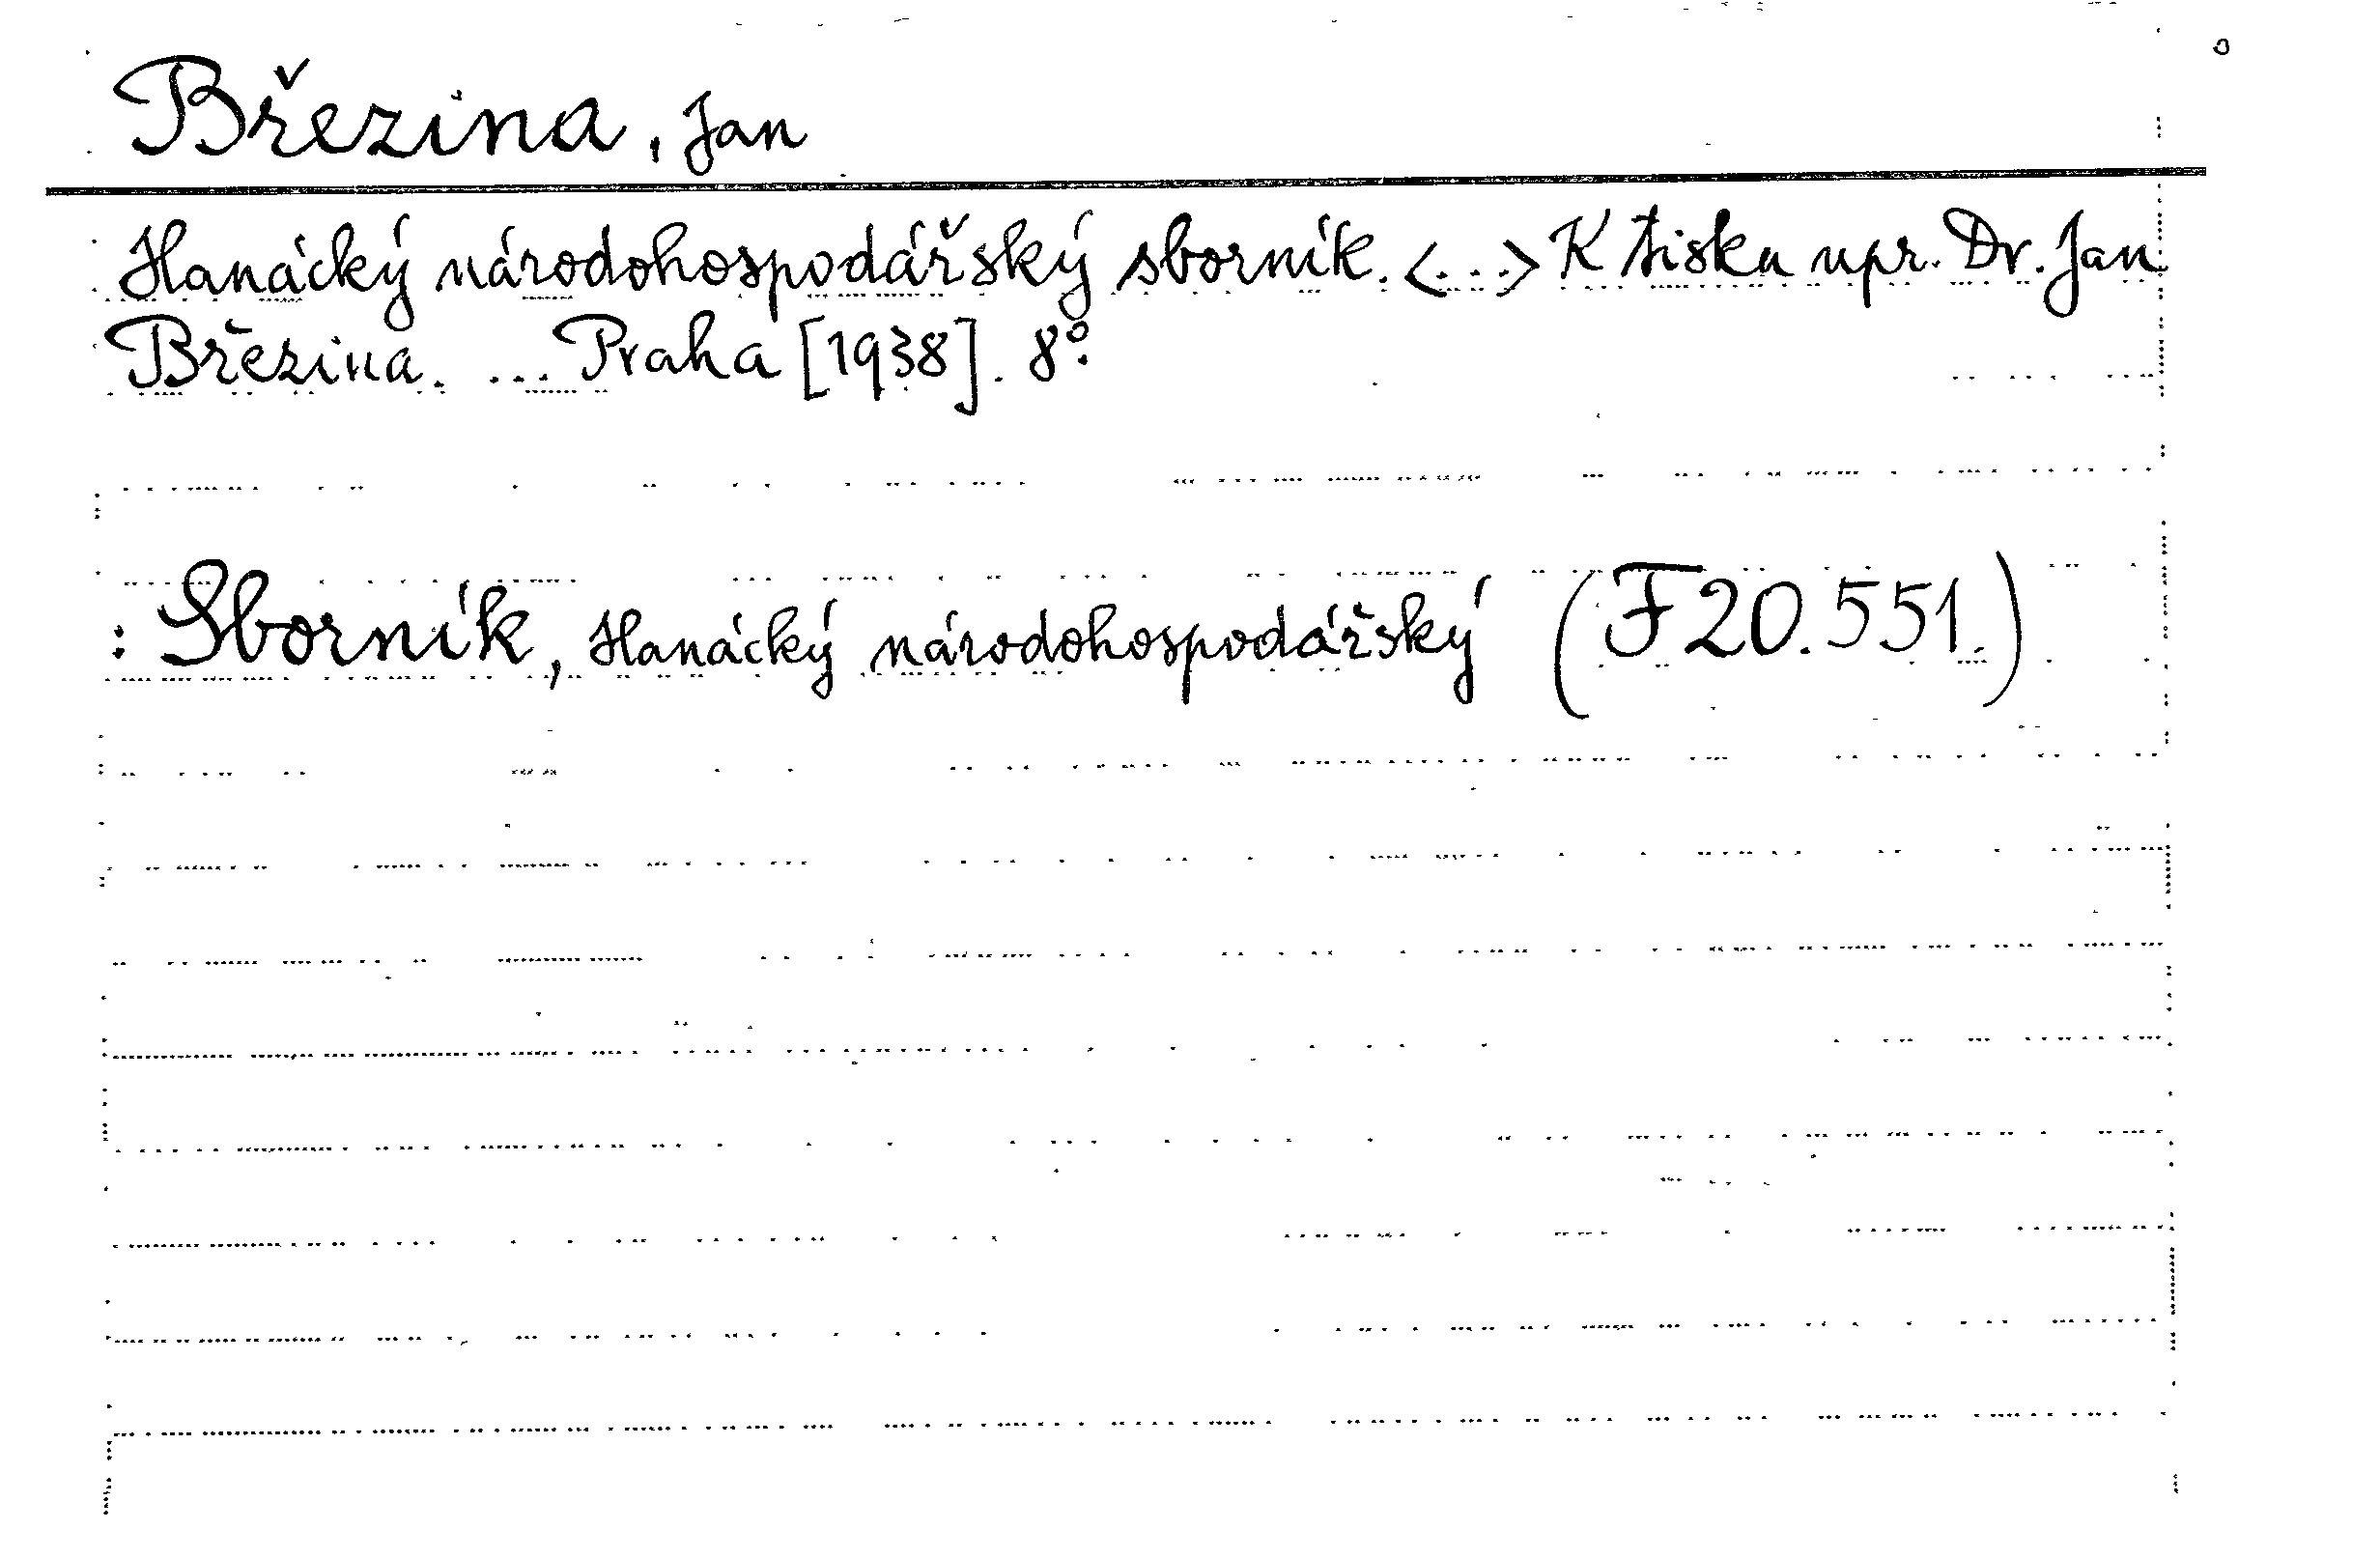 Březina, Jan
Hanácký národohospodářský sborník. <...> K tisku upr. Dr. Jan
Březina. ... Praha [1938]. 8°.
: Sborník, Hanácký národohospodářský (F 20.551.)